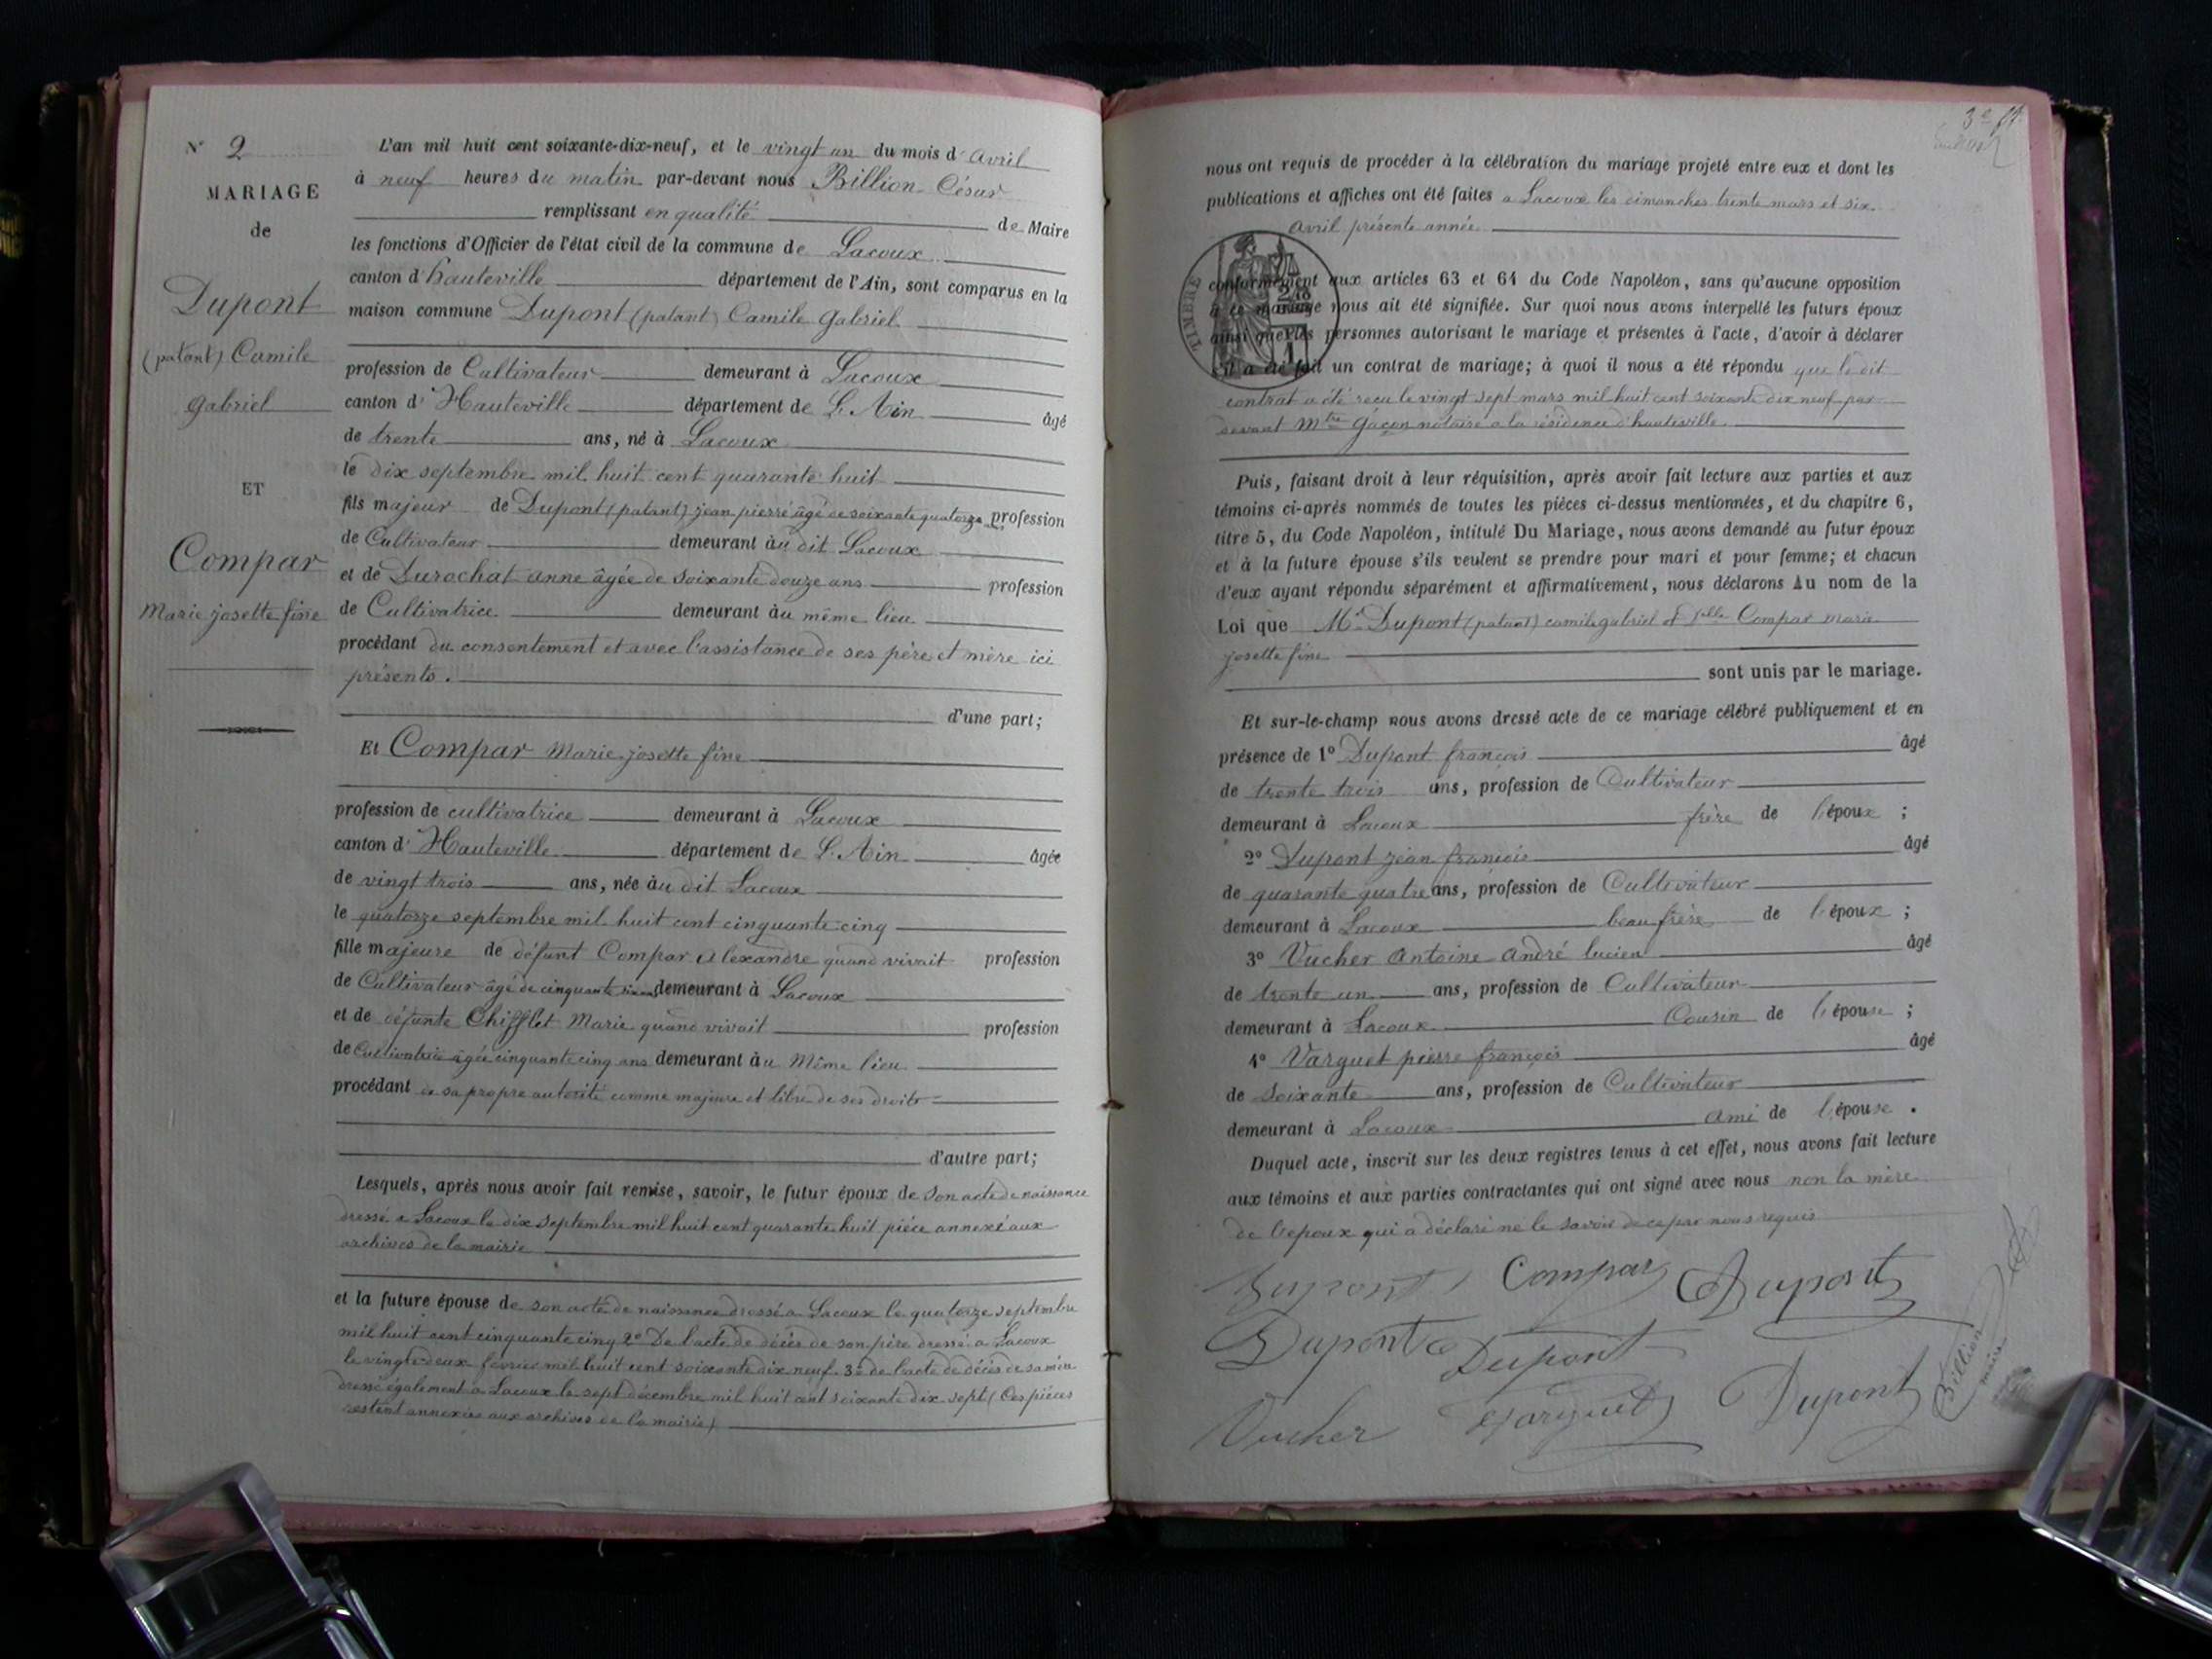 N° 2
MARIAGE
de
Dupont
(patant) Camile
gabriel
ET
Compar
Marie josette fine
L'an mil huit cent soixante-dix-neuf, et le vingt un du mois d'avril
à neuf heures du matin par-devant nous Billion César
remplissant en qualité de Maire
les fonctions d'Officier de l'état civil de la commune de Lacoux
canton d'hauteville département de l'Ain, sont comparus en la
maison commune Dupont (patant) Camile gabriel
profession de Cultivateur demeurant à Lacoux
canton d'Hauteville département de L'Ain âgé
de trente ans, né à Lacoux
le dix septembre mil huit cent quarante huit
fils majeur de Dupont (patant) jean pierre âgé de soixante quatorze profession
de Cultivateur demeurant au dit Lacoux
et de Durochat anne âgée de soixante douze ans profession
de Cultivatrice demeurant au même lieu
procédant du consentement et avec l'assistance de ses père et mère ici
présents.
d'une part;
Et Compar Marie josette fine
profession de cultivatrice demeurant à Lacoux
canton d'Hauteville département de L'Ain âgée
de vingt trois ans, née au dit Lacoux
le quatorze septembre mil huit cent cinquante cinq
fille majeure de défunt Compar Alexandre quand vivait profession
de Cultivateur âgé de cinquante demeurant à Lacoux
et de défunte Chifflet Marie quand vivait profession
de Cultivatrice âgée cinquante cinq ans demeurant au Même lieu
procédant de sa propre autorité comme majeure et libre de ses droits
d'autre part;
Lesquels, après nous avoir fait remise, savoir, le futur époux de son acte de naissance
dressé a Lacoux le dix septembre mil huit cent quarante huit pièce annexé aux
archives de la mairie
et la future épouse de son acte de naissance dressé a Lacoux le quatorze septembre
mil huit cent cinquante cinq 2° De l'acte de décès de son père dressé a Lacoux
le vingt deux février mil huit cent soixante dix neuf. 3° de l'acte de décès de sa mère
dressé également a Lacoux le sept décembre mil huit cent soixante dix sept (Ces pièces
restent annexées aux archives de la mairie)
3e ft.
nous ont requis de procéder à la célébration du mariage projeté entre eux et dont les
publications et affiches ont été faites a Lacoux les dimanches trente mars et six
avril présente année
TIMBRE
conformément aux articles 63 et 64 du Code Napoléon, sans qu'aucune opposition
à ce mariage nous ait été signifiée. Sur quoi nous avons interpellé les futurs époux
ainsi que les personnes autorisant le mariage et présentes à l'acte, d'avoir à déclarer
s'il a été fait un contrat de mariage; à quoi il nous a été répondu que le dit
contrat a été reçu le vingt sept mars mil huit cent soixante dix neuf par
devant Mtre Gacon notaire a la résidence d'hauteville
Puis, faisant droit à leur réquisition, après avoir fait lecture aux parties et aux
témoins ci-après nommés de toutes les pièces ci-dessus mentionnées, et du chapitre 6,
titre 5, du Code Napoléon, intitulé Du Mariage, nous avons demandé au futur époux
et à la future épouse s'ils veulent se prendre pour mari et pour femme; et chacun
d'eux ayant répondu séparément et affirmativement, nous déclarons Au nom de la
Loi que Mr Dupont (patant) camile gabriel et Delle Compar marie
josette fine
sont unis par le mariage.
Et sur-le-champ nous avons dressé acte de ce mariage célébré publiquement et en
présence de 1° Dupont françois âgé
de trente trois ans, profession de Cultivateur
demeurant à Lacoux frère de l'époux ;
2° Dupont jean françois âgé
de quarante quatre ans, profession de Cultivateur
demeurant à Lacoux beau frère de l'époux ;
3° Vucher Antoine André lucien âgé
de trente un ans, profession de Cultivateur
demeurant à Lacoux Cousin de l'épouse ;
4° Varguet pierre françois âgé
de Soixante ans, profession de Cultivateur
demeurant à Lacoux ami de l'épouse .
Duquel acte, inscrit sur les deux registres tenus à cet effet, nous avons fait lecture
aux témoins et aux parties contractantes qui ont signé avec nous non la mère
de l'époux qui a déclaré ne le savoir de ce par nous requis
Dupont Compar Dupont
Dupont Dupont
Vucher Varguet Dupont
Billion
maire